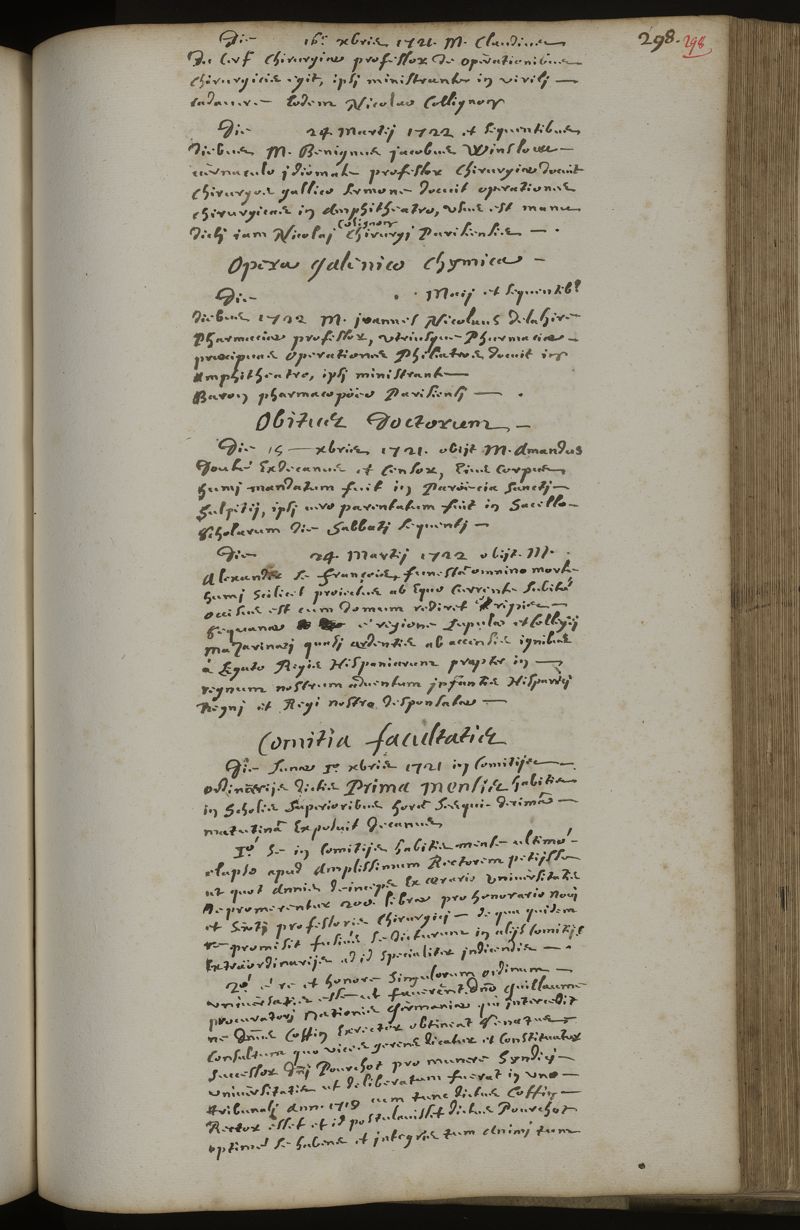 298. 298
Die 16ª xbris 1721. M. Claudius
De Cerf Chirurgiæ professor de operationibus
Chirurgicis egit, ipsi ministrante in virili
cadavere eodem Nicolao Collignon
Die 24 Martij 1722 et sequentibus
diebus M. Benignus jacobus Winslow
vernaculo jdiomate professor Chirurgiæ docuit
Chirurgos gallico sermone docuit operationes
chirurgicas in Amphitheatro, usus est manu
dicti iam Nicolaj Collignon Chirurgj Parisiensis
Opera galenico chymica
Die Maij et sequentibs
diebus 1722 M. joannes Nicolaus Delahire
Pharmaciæ professor, utriusque Pharmaciæ
præcipuas operationes Philiatros docuit in
Amphitheatro, ipsi ministrante
Baron pharmacopœo Parisiensi
Obitus Doctorum
Die 15 xbris 1721. obijt M. Amandus
Douté Exdecanus et Censor, Eius Corpus
humj mandatum fuit in Parœcia Sanctj
Sulpitij, ipsi vero parentatum fuit in Sacello
Scholarum die Sabbatj sequentj
Die 24 Martij 1722 obijt M.
Alexander Le françois, funesta omnino morte
humj scilicet proiectus ab Equo Currente subito
occisus est cum domum rediret è ripis
Sequanæ è regione Lupuræ et Collegij
Mazarinæj quasj ardentis ab accensis ignibus
à Legato Regis Hispaniarum propter in
regnum nostrum aduentum jnfantis Hispanicj
Regnj et Regi nostro desponsatæ
Comitia facultatis
Die Lunæ 1ª xbris 1721 in Comitijs
ordinarijs dictis Prima mensis habitis
in Scholis Superioribus hora sesqui-decima
matutina Exposuit decanus
1º Se in Comitijs habitis mense ultimo
elapso apud Amplissimum Rectorem petijsse
ut quot Annis deinceps Ex ærario Universitatis
depromerentur 200 libræ pro honorario noui
et professoris Chirurgiæ de qua quidem
re promisit fusius se dicturum in alijs Comitijs
Extraordinarijs ad id specialiter jndicendis
2º è re et honore Singulorum ordinum
Universitatis esse ut fauerent Dno Guillaume
procuratorj Nationis Germaniæ qui intercedit
ne Dnus Coffin Exrector obtineat Senatus
Consultum quo vices gerens dicatur et Constituatur
Successor Dnj Pourchot pro munere Syndicj
Universitatis ut deliberatum fuerat in uno
tribunalj Ann. 1719 cum tunc dictus Coffin
Rector esset et id postulauisset dictus Pourchot
optime se habens et integris tum Animj tum